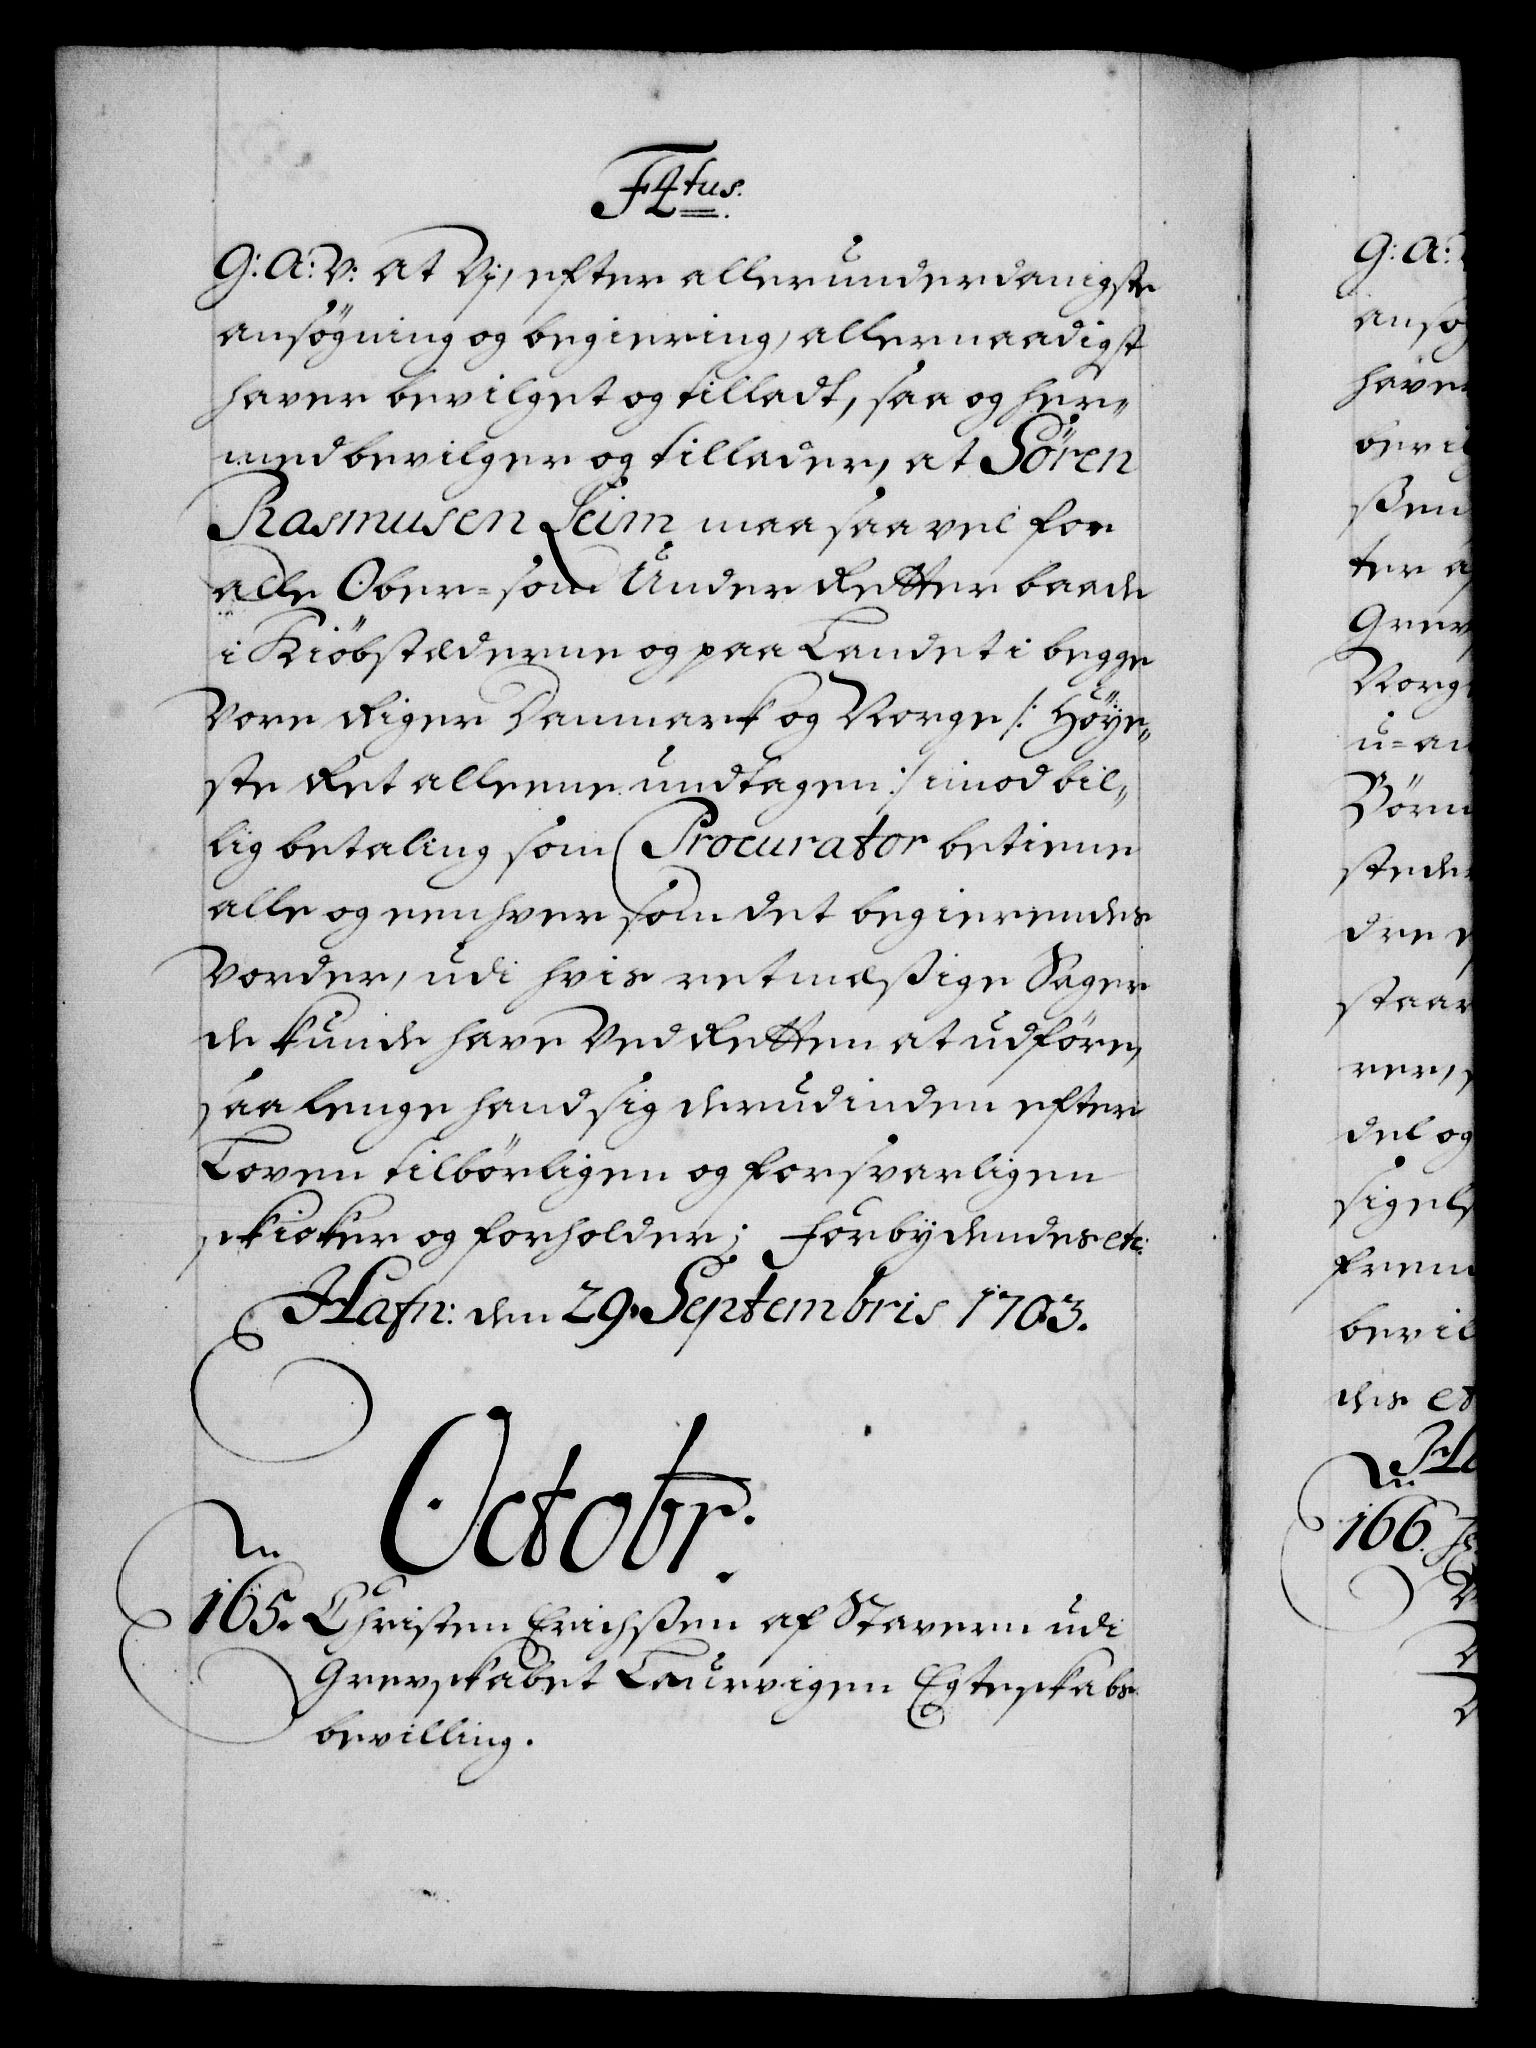 F4tus.
G: A: V: at Vj, efter allerunderdanigste
ansögning og begiering, allernaadigst
haver bevilget og tilladt, saa og her„
med bevilger og tillader, at Sören
Rasmusen Leim maa saavel for
alle Ober= som Under Retter baade
i Kiöbstæderne og paa Landet i begge
Vore Riger Danmark og Norge /: Höye„
ste Ret alleene undtagen :/ imod bil„
lig betaling som Procurator betiene
alle og eenhver som det begierendes
Vorder, udi hvis retmæßige Sager
de kunde have Ved Retten at udföre,
saa lenge hand sig derudinden efter
Loven tilbörligen og forsvarligen
skicker og forholder; Forbydendes etc:
Hafn: den 29. Septembris 1703.
Octobr:
165. Christen Erichßen af Stavern udi
Grevskabet Laurvigen Egteskabs
bevilling.
G: A:
ansög
haver
bevil
ßen
ter a
Grev
Norg
u=an
Börn
steder
dre
staar
rer,
del og
sigels
frem
bevil
des et
Ha
166.